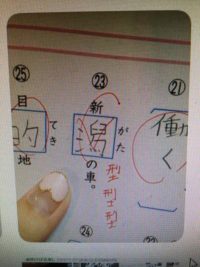 ㉑
働く
㉒
㉓
新潟の車。
がた
型型型
㉔
㉕
目的地
てき